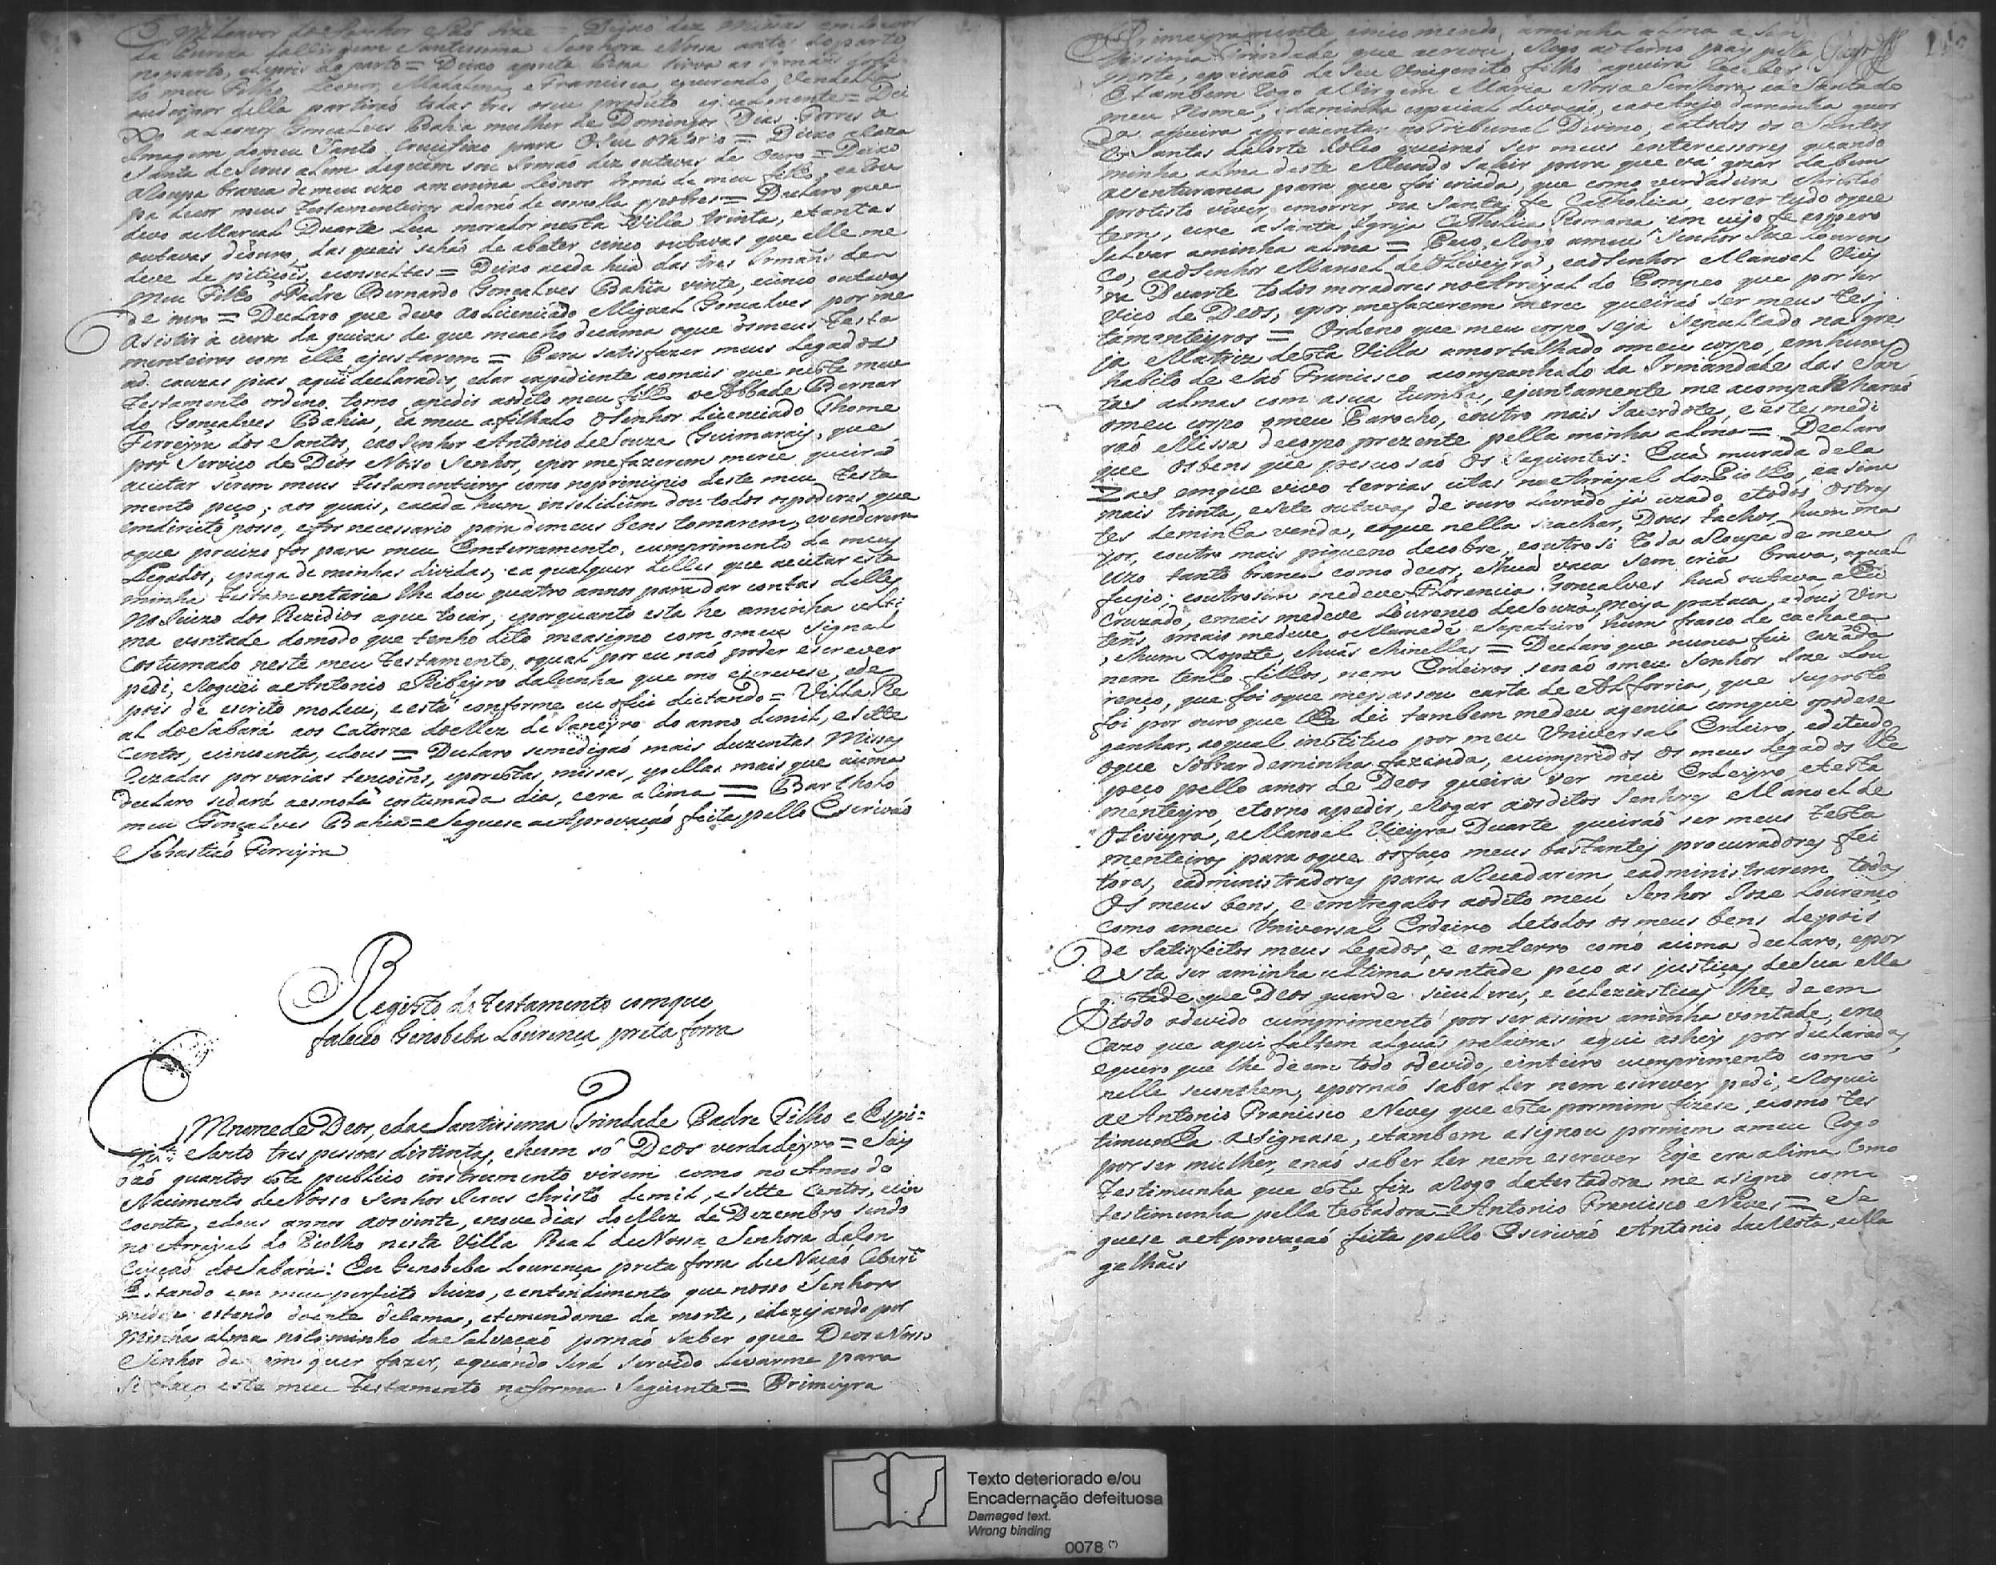 Em Louvor do Senhor São Joze = Deixo dez Missas em Louvor
da Pureza da Virgem Santissima Senhora Nossa antes do parto
no parto, e depois do parto =
meu Filho, Leonor, Madalena, e Francisca, querendo vendella
della partirão todas tres o seu produto igualmente = Dei
xo a Leonor Gonçalves Bahia mulher de Domingos Dias Torres a
Imagem do meu Santo Crucifixo para o seu oratorio = Deixo a Caza
Santa de Jerusalem de quem sou Irmão dez outavas de ouro = Deixo
a Roupa branca de meu uzo a menina Leonor Irmã de meu filho, e a rou
pa de cor meus testamenteiros a darão de esmola a pobres = Declaro que
devo a Marcal Duarte Lea morador nesta Villa trinta, e tantas
outavas de ouro, das quais se hão de abater cinco outavas que elle me
deve de petiçois, e consultas = Deixo a cada huã das tres Irmans de
meu Filho o Padre Bernardo Gonçalves Bahia vinte, e cinco outavas
de ouro = Declaro que devo ao Licenciado Miguel Gonçalves por me
asistir a cura da queixa de que me acho de cama o que os meus testa
menteiros com elle ajustarem = Para satisfazer meus Legados
ad cauzas pias aqui declarados, e dar expediente ao mais que neste meu
testamento ordeno torno a pedir ao dito meu filho o Abbade Bernar
do Gonçalves Bahia, e a meu afilhado o Senhor Licenciado Thome
Ferreyra dos Santos, e ao Senhor Antonio de Souza Guimarais, que
por Serviço de Deos Nosso Senhor, e por me fazerem merce queirão
aceitar serem meus testamenteiros como no principio deste meu testa
mento peço; aos quais, e a cada hum in solidum dou todos os poderes que
em direito posso, e for necessario para de meus bens tomarem, e venderem
o que precizo for para meu Emterramento, cumprimento de meus
Legados, e paga de minhas dividas, e a qualquer delles que aceitar esta
minha testamentaria lhe dou quatro annos para dar contas dellas
no Juizo dos Rezidios a que tocar; e porquanto esta he a minha ulti
ma vontade do modo que tenho dito me asigno com o meu signal
costumado neste meu testamento, o qual por eu não poder escrever
pedi, e Roguei a Antonio Ribeyro da Cunha que mo escrevese, e de
pois de escrito mo leu, e está conforme eu o fui dictando = Villa Re
al do Sabará aos catorze do Mez de Janeyro do anno de mil, e sette
centos, e cincoenta, e dous = Declaro se me digão mais duzentas Missas
Rezadas por varias tençoins, e por estas, missas, e pellas mais que asima
declaro se dará a esmola costumada dia, e era asima = Bartholo
meu Gonçalves Bahia = e Seguese a Aprovação feita pello Escrivão
Sebastião Ferreyra
Registo do testamento com que
faleceo Genobeba Lourença preta forra
Em nome de Deos, e da Santissima Trindade Padre Filho e Espi=
rito Santo tres pessoas distintas, e hum só Deos verdadeyro = Say
bão quantos este publico instrumento virem como no Anno do
Nacimento de Nosso Senhor Jesus christo de mil, e sette centos, e cin
coenta, e dous annos aos vinte, e nove dias do Mez de Dezembro sendo
no Arrayal do Piolho nesta Villa Real de Nossa Senhora da Con
ceição do Sabará: Eu Genobeba Lourença preta forra de Nação
Estando em meu perfeito Juizo, e entendimento que nosso Senhor
me deu estando doente de cama, e temendome da morte, e dezejando por
minha alma no caminho da Salvação por não saber o que Deos Nosso
Senhor de mim quer fazer, e quando será servido levarme para
Si faço este meu testamento na forma Seguinte = Primeyra
Primeyramente encomendo a minha alma a San
tissima Trindade que a creou, e Rogo ao Eterno Pay pela
morte, e paixão do Seu Unigenito filho a queira receber
E tambem Rogo a Virgem Maria Nossa Senhora, e a Santa do
meu Nome, e da minha especial devoção, e ao Anjo da minha guar
da a queira aprezentar no Tribunal Divino, e a todos os Santos
e Santas da Corte do Ceo queirão ser meus entercessores quando
minha alma deste Mundo sahir para que vá gozar da bem
aventurança para que foi criada, que como verdadeira christã
protesto viver, e morrer na Santa fe Catholica, e crer tudo o que
tem, e cre a Santa Igreja Catholica Romana em cuja fe espero
salvar a minha alma = Peço, e Rogo a meu Senhor Joze Louren
ço, e ao Senhor Manoel de Oliveyra, e ao Senhor Manoel Viey
ra Duarte todos moradores no Arrayal do Pompeo que por ser
viço de Deos, e por me fazerem merce queirão ser meus tes
tamenteyros = Ordeno que meu corpo seja sepultado na Igre
ja Matriz desta Villa amortalhado o meu corpo em hum
habito de São Francisco acompanhado da Irmandade das San
tas almas com a sua tumba, e juntamente me acompanhará
o meu corpo o meu Parocho, e outro mais Sacerdote, e estes me di
rão Missa de corpo prezente pella minha alma = Declaro
que os bens que possuo são os Seguintes: huã morada de ca
zas em que vivo terrias citas no Arrayal do Piolho, e asim
mais trinta, e sete outavas de ouro Lavrado já uzado, e todos os tras
tes de minha venda, e o que nella se achar, Dous tachos, hum ma
yor, e outro mais piqueno de cobre, e outro si toda a Roupa de meu
uzo tanto branca como de cor, e huã vaca sem cria brava, a qual
fugio: e outro sim me deve Florencia Gonçalves huã outava e
Cruzado, e mais me deve Lourenço de Souza meya pataca, e dous vin
tens, e mais me deve o Mamede Sapateiro hum frasco de cachaça
, e hum Xopate, e huãs chinellas = Declaro que nunca fui cazada
nem tenho filhos, nem Erdeiros senão o meu Senhor Joze Lou
renço, que foi o que me passou carta de Alforria, que suposto
foi por ouro que lhe dei tambem me deu agencia com que o podese
ganhar, ao qual instituo por meu Universal Erdeiro, e de tudo
o que sobrar de minha fazenda, e cumpridos os meus Legados lhe
peço pello amor de Deos queira ser meu Erdeyro, e testa
menteyro, e torno a pedir, e Rogar aos ditos Senhores Manoel de
Oliveyra, e Manoel Vieyra Duarte queirão ser meus testa
menteiros para o que os faço meus bastantes procuradores fei
tores, e administradores para aRecadarem, e administrarem todos
os meus bens, e emtregalos ao dito meu Senhor Joze Lourenço
como a meu Universal Erdeiro de todos os meus bens depois
de satisfeitos meus Legados, e emterro como asima declaro, e por
esta ser a minha ultima vontade peço as justiças de Sua Ma
gestade que Deos guarde siculares, e ecleziasticas lhe deem
todo o devido cumprimento por ser assim a minha vontade, e no
cazo que aqui faltem alguãs palavras aqui as hey por declaradas
e quero que lhe deem todo o devido, e inteiro cumprimento como
nelle se conthem, e por não saber ler nem escrever pedi, e Roguei
a Antonio Francisco Neves que este por mim fizese, e como tes
timunha asignase, e tambem asignou por mim a meu Rogo
por ser mulher, e não saber ler nem escrever hoje era asima como
testimunha que este fiz a Rogo da testadora me asigno como
testimunha pella testadora = Antonio Francisco Neves = Se
guese a Aprovação feita pello Escrivão Antonio da Mota e Ma
galhais
Texto deteriorado e/ou
Encadernação defeituosa
Damaged text.
Wrong binding
0078 (*)